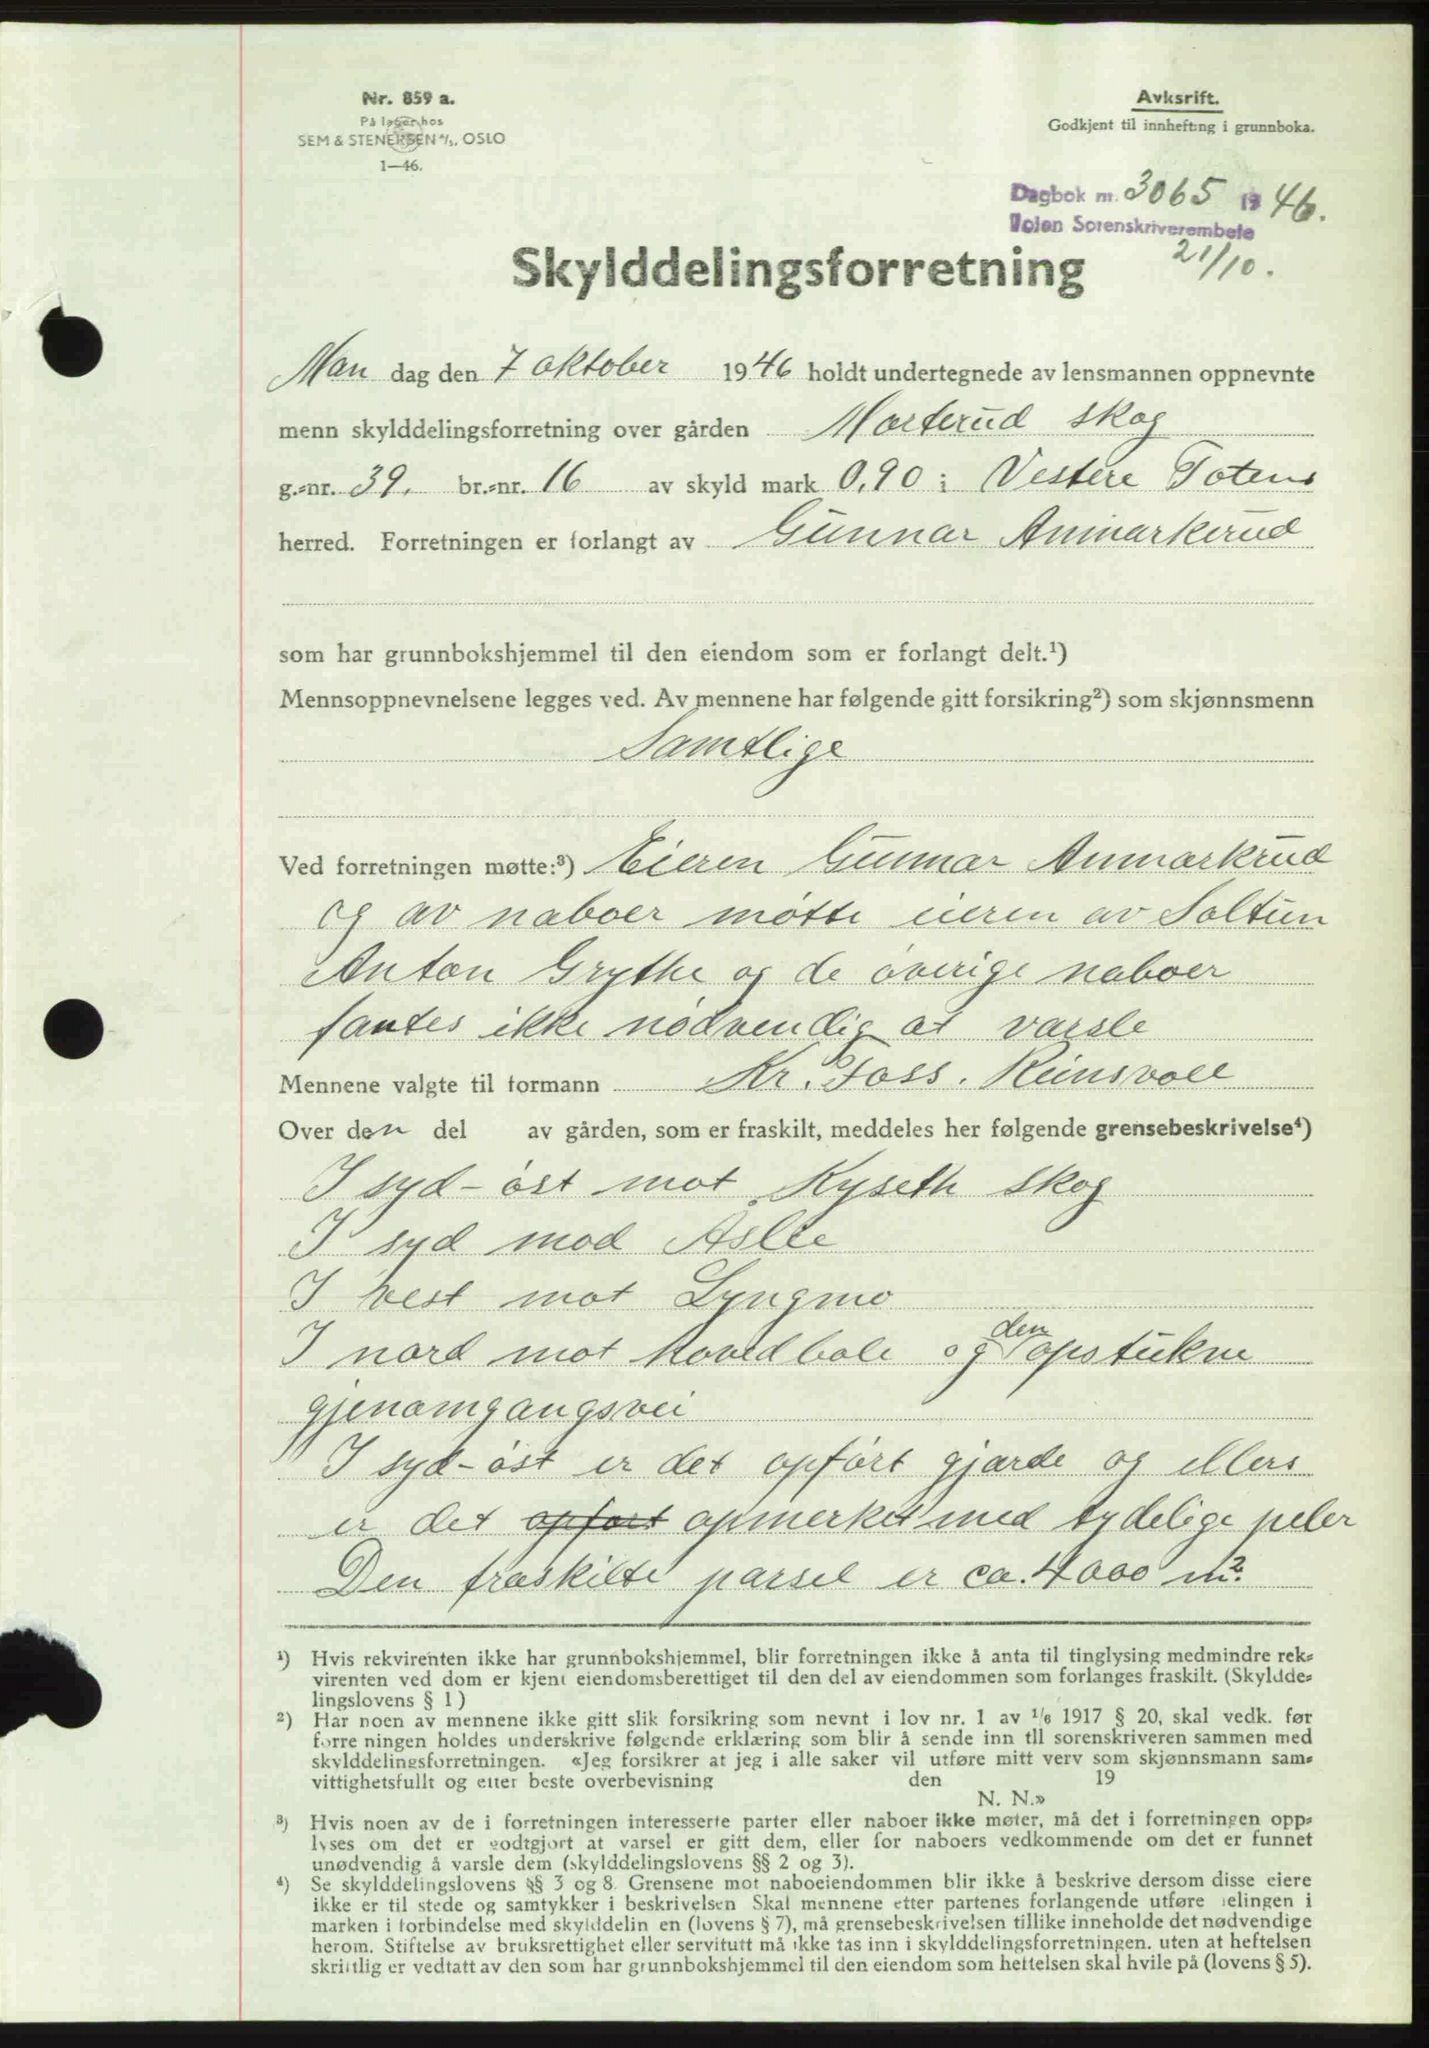 Nr. 859 a.
På lager hos
SEM & STENERSEN A/S, OSLO
1—46.
Avksrift.
Godkjent til innhefting i grunnboka.
Dagbok nr. 3065 1946.
Toten Sorenskriverembete
21/10.
Skylddelingsforretning
Man dag den 7 oktober 1946 holdt undertegnede av lensmannen oppnevnte
menn skylddelingsforretning over gården Morterud skog
g.-nr. 39. br.-nr. 16 av skyld mark 0,90 i Vestre Totens
herred. Forretningen er forlangt av Gunnar Anmarkrud
som har grunnbokshjemmel til den eiendom som er forlangt delt.¹)
Mennsoppnevnelsene legges ved. Av mennene har følgende gitt forsikring²) som skjønnsmenn
Samtlige
Ved forretningen møtte:³) Eieren Gunnar Anmarkrud
og av naboer møtte eieren av Soltun
Anton Grythe og de øvrige naboer
fantes ikke nødvendig at varsle
Mennene valgte til formann Kr. Foss. Reinsvoll
Over den del av gården, som er fraskilt, meddeles her følgende grensebeskrivelse⁴)
I syd-øst mot Kyseth skog
I syd mod Åslie
I vest mot Lyngmo
I nord mot hovedbøle og den opstukne
gjenomgangsvei
I syd-øst er det opført gjærde og ellers
er det opført opmerket med tydelige peler
Den fraskilte parsel er ca. 4000 m².
¹) Hvis rekvirenten ikke har grunnbokshjemmel, blir forretningen ikke å anta til tinglysing medmindre rek-
virenten ved dom er kjent eiendomsberettiget til den del av eiendommen som forlanges fraskilt. (Skyldde-
lingslovens § 1)
²) Har noen av mennene ikke gitt slik forsikring som nevnt i lov nr. 1 av 1/6 1917 § 20, skal vedk. før
forre ningen holdes underskrive følgende erklæring som blir å sende inn til sorenskriveren sammen med
skylddelingsforretningen. «Jeg forsikrer at jeg i alle saker vil utføre mitt verv som skjønnsmann sam-
vittighetsfullt og etter beste overbevisning den 19
N. N.»
³) Hvis noen av de i forretningen interesserte parter eller naboer ikke møter, må det i forretningen opp-
lyses om det er godtgjort at varsel er gitt dem, eller for naboers vedkommende om det er funnet
unødvendig å varsle dem (skylddelingslovens §§ 2 og 3).
⁴) Se skylddelingslovens §§ 3 og 8. Grensene mot naboeiendommen blir ikke å beskrive dersom disse eiere
ikke er til stede og samtykker i beskrivelsen Skal mennene etter partenes forlangende utføre delingen i
marken i forbindelse med skylddelin en (lovens § 7), må grensebeskrivelsen tillike inneholde det nødvendige
herom. Stiftelse av bruksrettighet eller servitutt må ikke tas inn i skylddelingsforretningen. uten at heftelsen
skriftlig er vedtatt av den som har grunnbokshjemmel til den eiendom som heftelsen skal hvile på (lovens § 5).